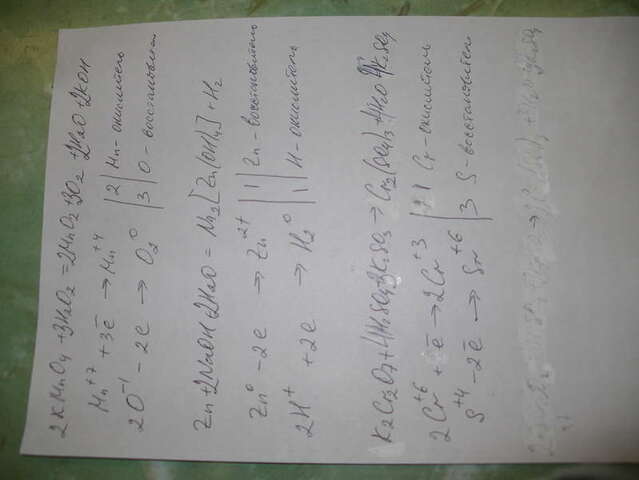 2KMnO4 + 3H2O2 = 2MnO2 + 3O2 + 2H2O + 2KOH
Mn+7 + 3ē → Mn+4 | 2 | Mn - окислитель
2O-1 - 2ē → O2 0 | 3 | O - восстановител
Zn + 2NaOH + 2H2O = Na2[Zn(OH)4] + H2
Zn0 - 2ē → Zn2+ | 1 | Zn - восстановитель
2H+ + 2ē → H2 0 | 1 | H - окислитель
K2Cr2O7 + 4H2SO4 + 3K2SO3 → Cr2(SO4)3 + 4H2O + 4K2SO4
2Cr+6 + ē → 2Cr+3 | 2 | Cr - окислитель
S+4 - 2ē → S+6 | 3 S - восстановител